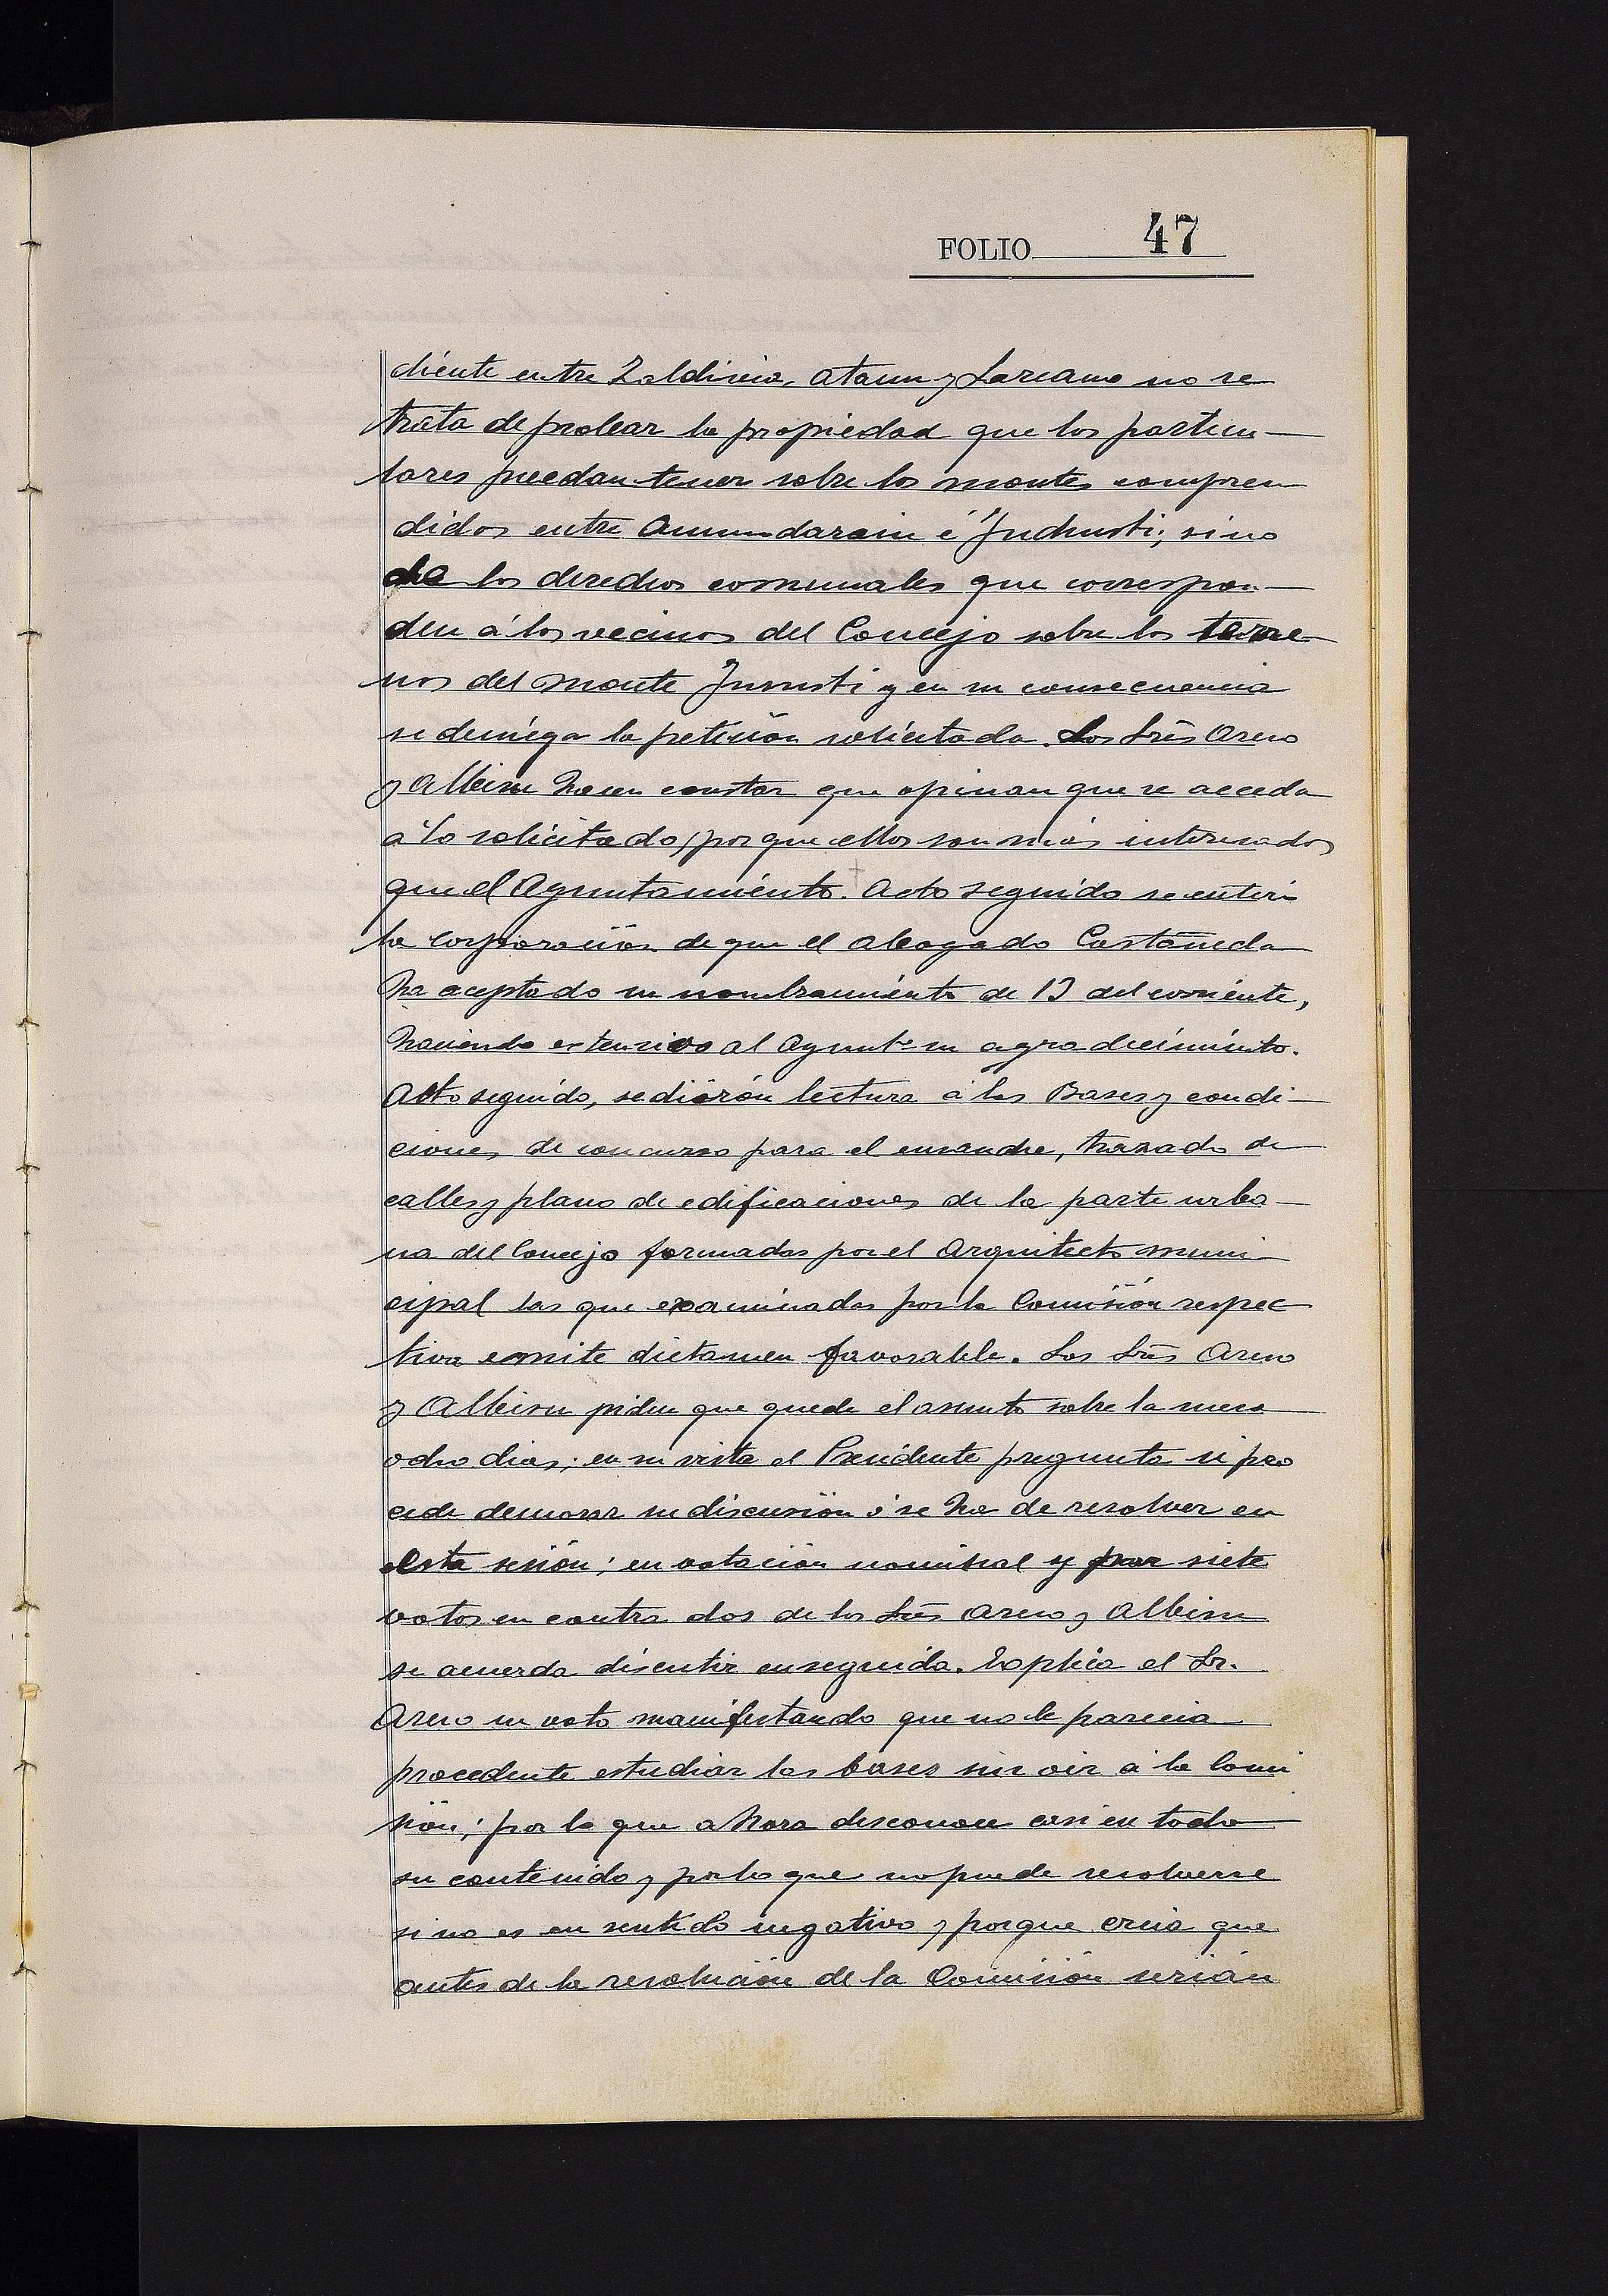 FOLIO 47
diente entre Zaldivia, Ataun y Lazcano no se
trata de probar la propiedad que los particu-
lares puedan tener sobre los montes compren
didos entre Amundarain é Inchusti; sino
de los derechos comunales que correspon-
den á los vecinos del Concejo sobre los terre
nos del monte Jnsusti y en su consecuencia
se deniega la petición solicitada. Los Srēs Areso
y Albisu hasen constar que opinan que se acceda
á lo solicitado, por que ellos son más interesados
que el Ayuntamiento. Acto seguido se enteró
la Corporación de que el abogado Castañeda
ha aceptado su nombramiento de 13 del corriente,
haciendo extensivo al Ayuntº su agradecimiento.
Acto seguido, se dierón lectura á las Bases y condi-
ciones de concurso para el ensanche, trazado de
calles y plano de edificaciones de la parte urba-
na del Concejo formadas por el Arquitecto muni
cipal las que examinadas por la Comisión respec
tiva emite dictamen favorable. Los Srēs Areso
y Albisu piden que quede el asunto sobre la mesa
ocho dias; en su vista el Presidente pregunta si pro
cede demorar su discusión ó se ha de resolver en
esta sesión; en votación nominal y por siete
votos en contra dos de los Srēs Areso y Albisu
se acuerda discutir enseguida. Explica el Sr.
Areso su voto manifestando que no le parecia
procedente estudiar las bases sin oir á la Comi
sión; por lo que ahora desconoce casi en todo
su contenido y por lo que no puede resolverse
si no es en sentido negativo y porque creia que
antes de la resolución de la Comisión serian